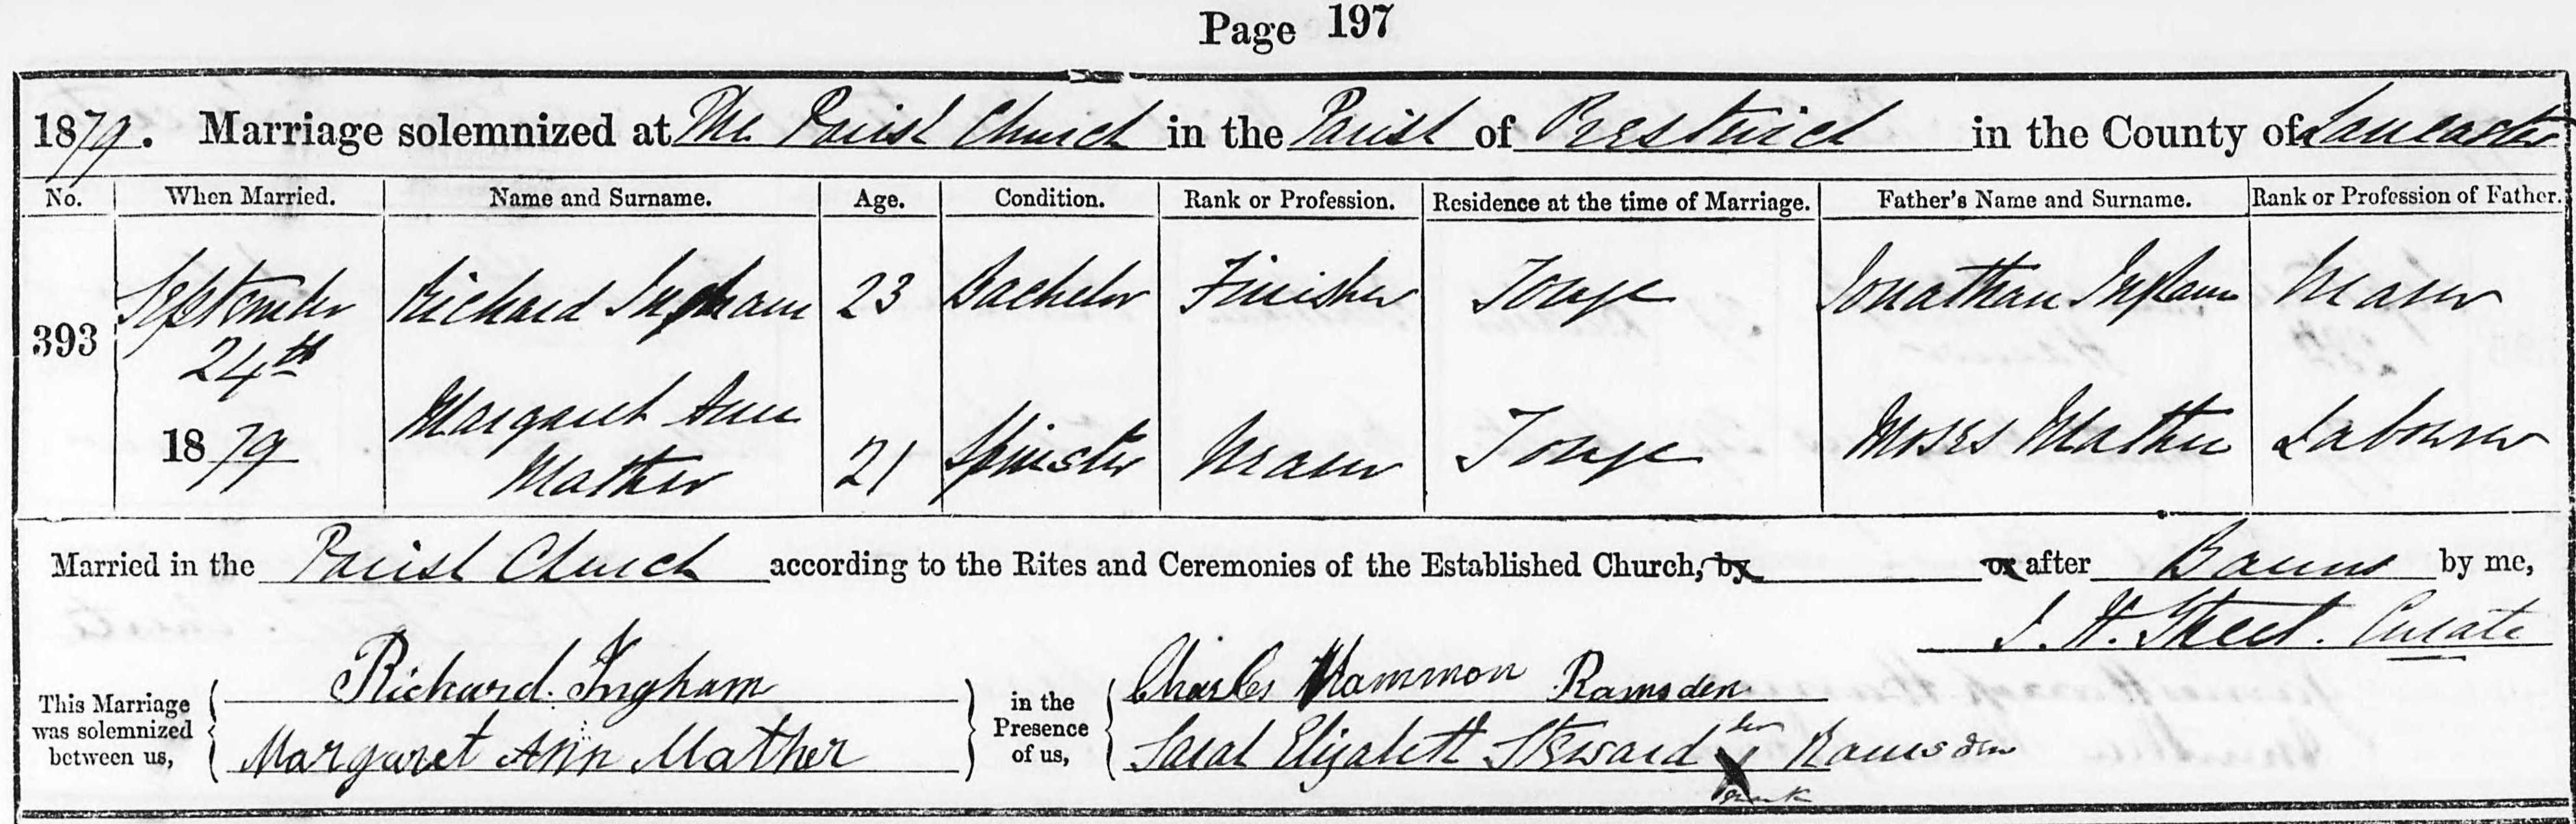 Page 197
1879. Marriage solemnized at The Parish Church in the Parish of Prestwich in the County of Lancaster
No. When Married. Name and Surname. Age. Condition. Rank or Profession. Residence at the time of Marriage. Father's Name and Surname. Rank or Profession of Father.
393 September 24th 1879 Richard Ingham 23 Bachelor Finisher Tonge Jonathan Ingham
Margaret Ann Mather 21 Spinster Tonge Moses Mather Labourer
Married in the Parish Church according to the Rites and Ceremonies of the Established Church, by or after Banns by me,
Curate
This Marriage was solemnized between us, Richard Ingham in the Presence of us, Charles Hammon Ramsden
Margaret Ann Mather Sarah Elizabeth Steward her X mark Ramsden